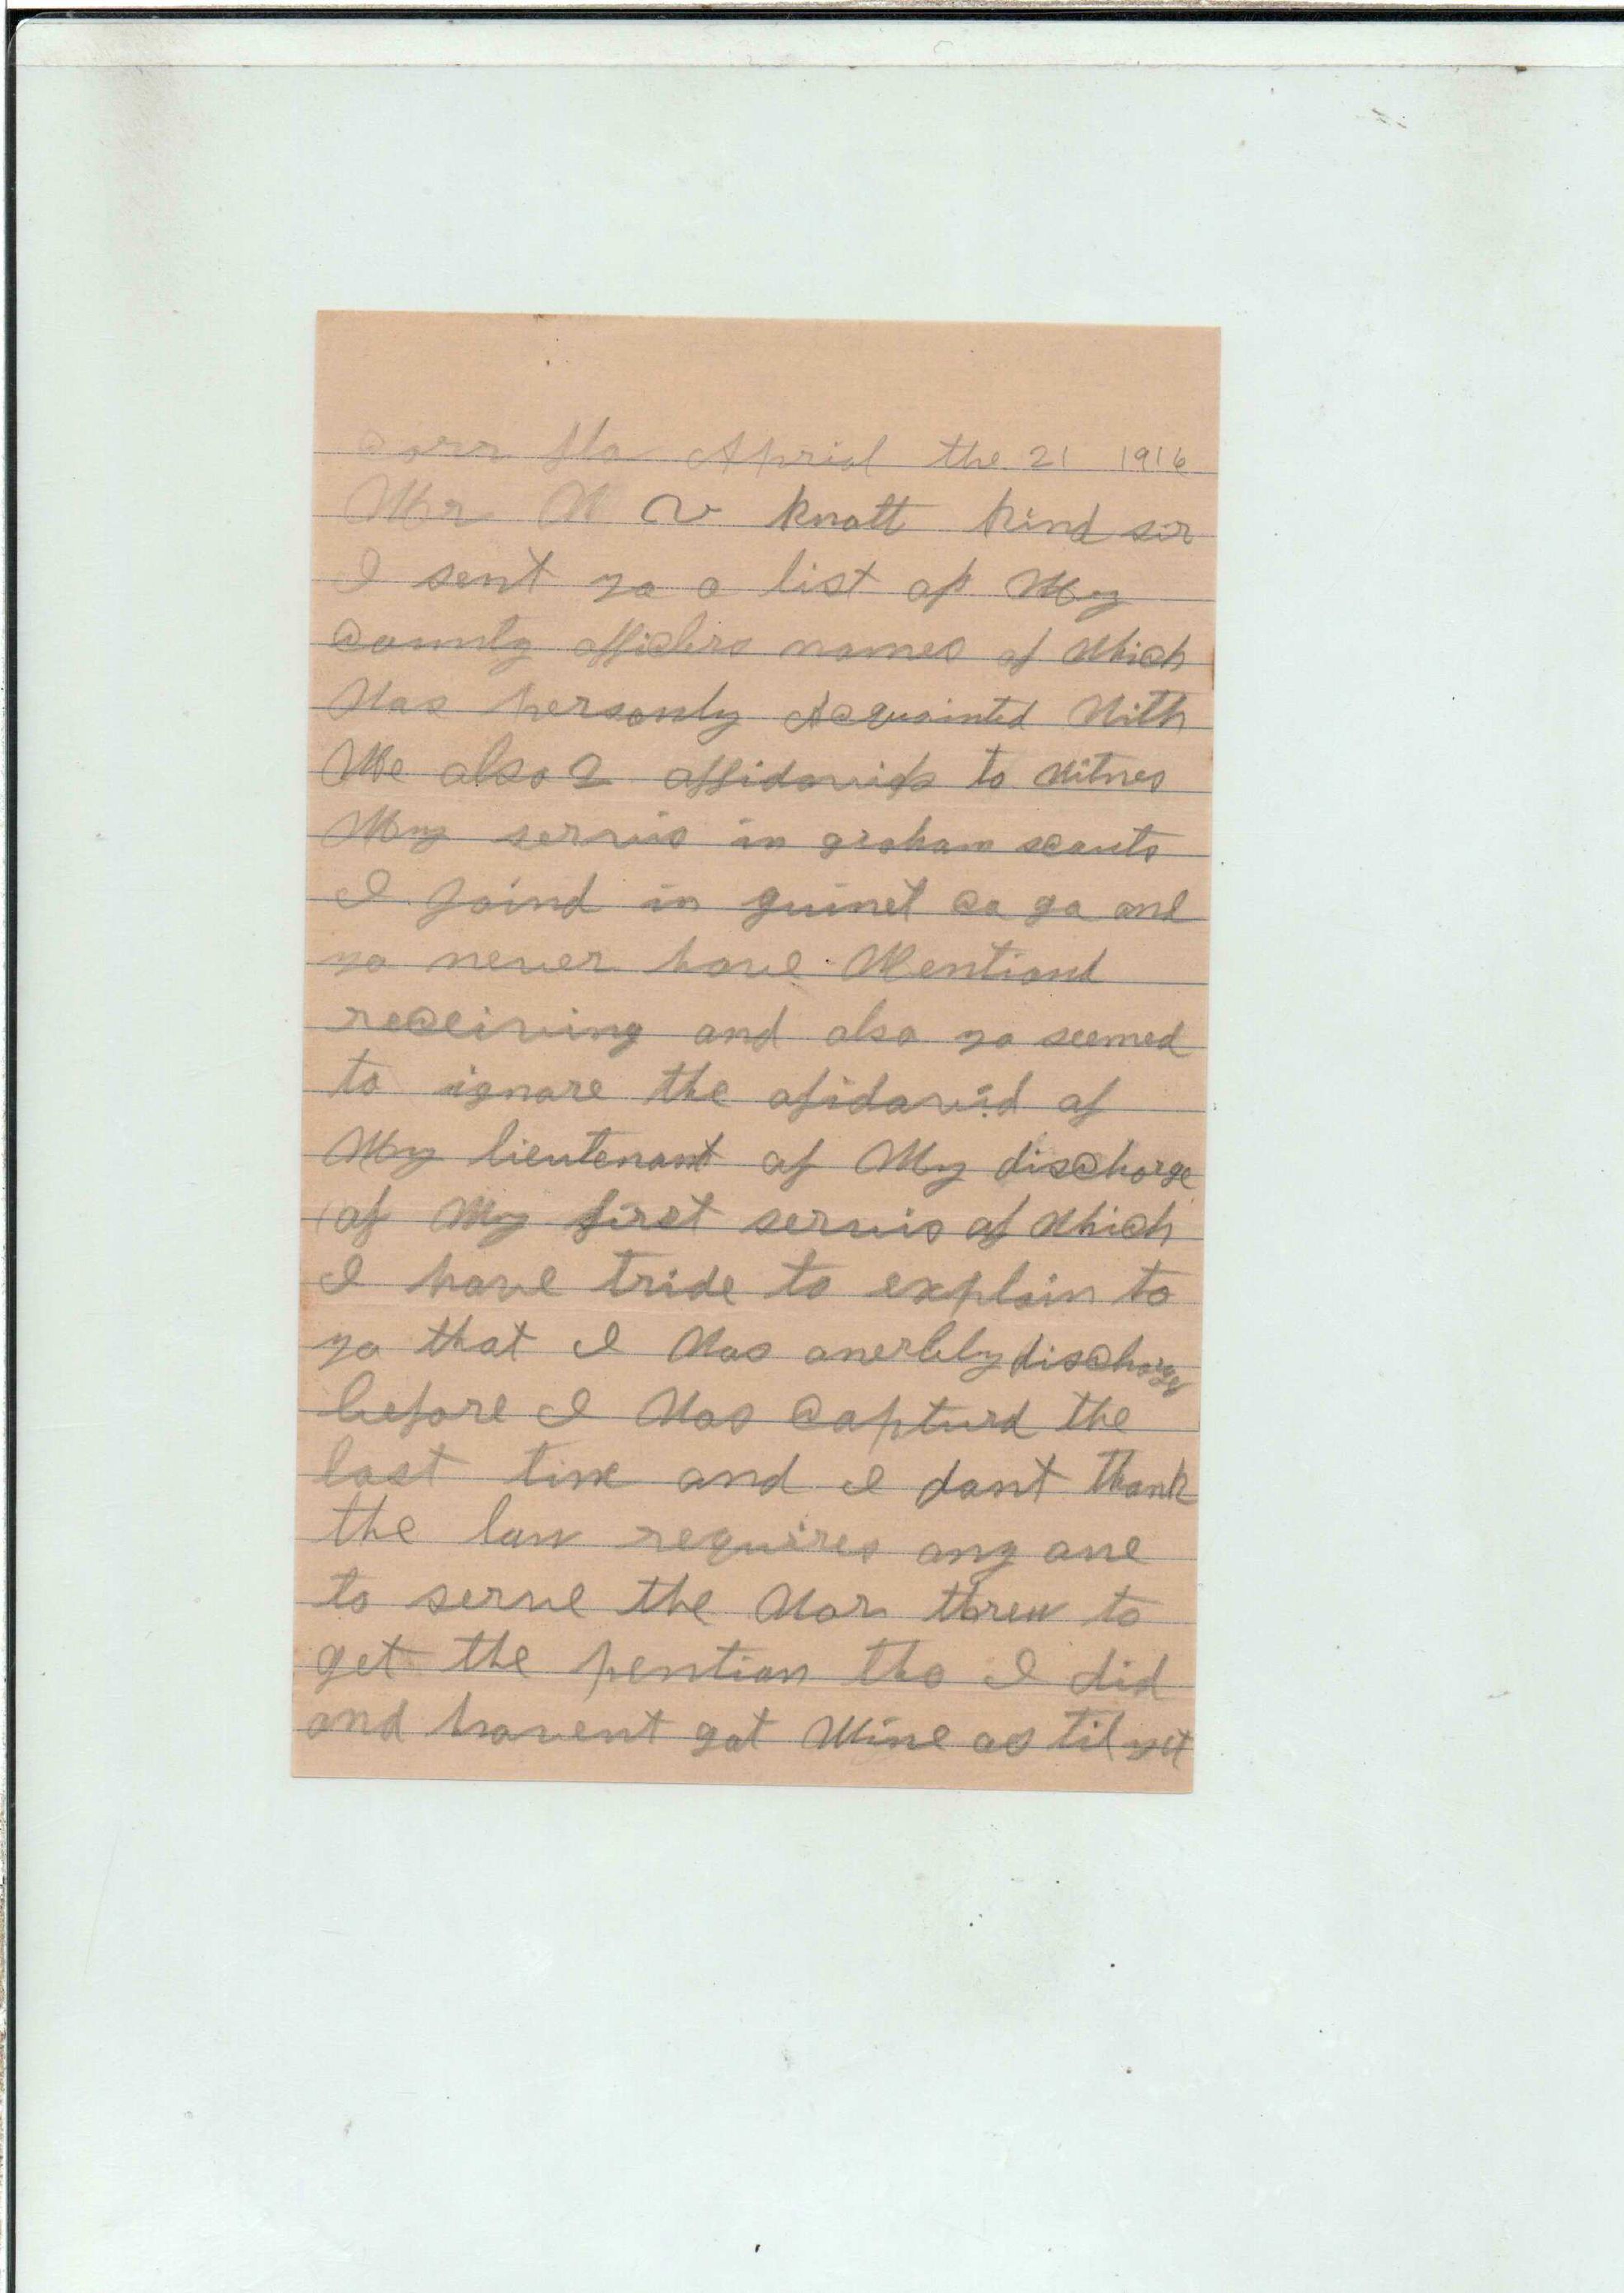 Carr Fla Aprial the 21 1916
Mr W V Knott kind sir
I sent yo a list of My
County officiers names of Which
Was personly Acquainted With
Me also 2 affidavids to Witnes
My servis in graham scouts
I joind in guinet Co ga and
yo never have Mentiond
receiving and also yo seemed
to ignore the afidavid of
My lieutenant of My discharge
of My first servis of Which
I have tride to explain to
yo that I Was onerbly discharge
before I Was Capturd the
last time and I dont thank
the law requires any one
to serve the War threw to
get the pention tho I did
and havent got Mine as til yet